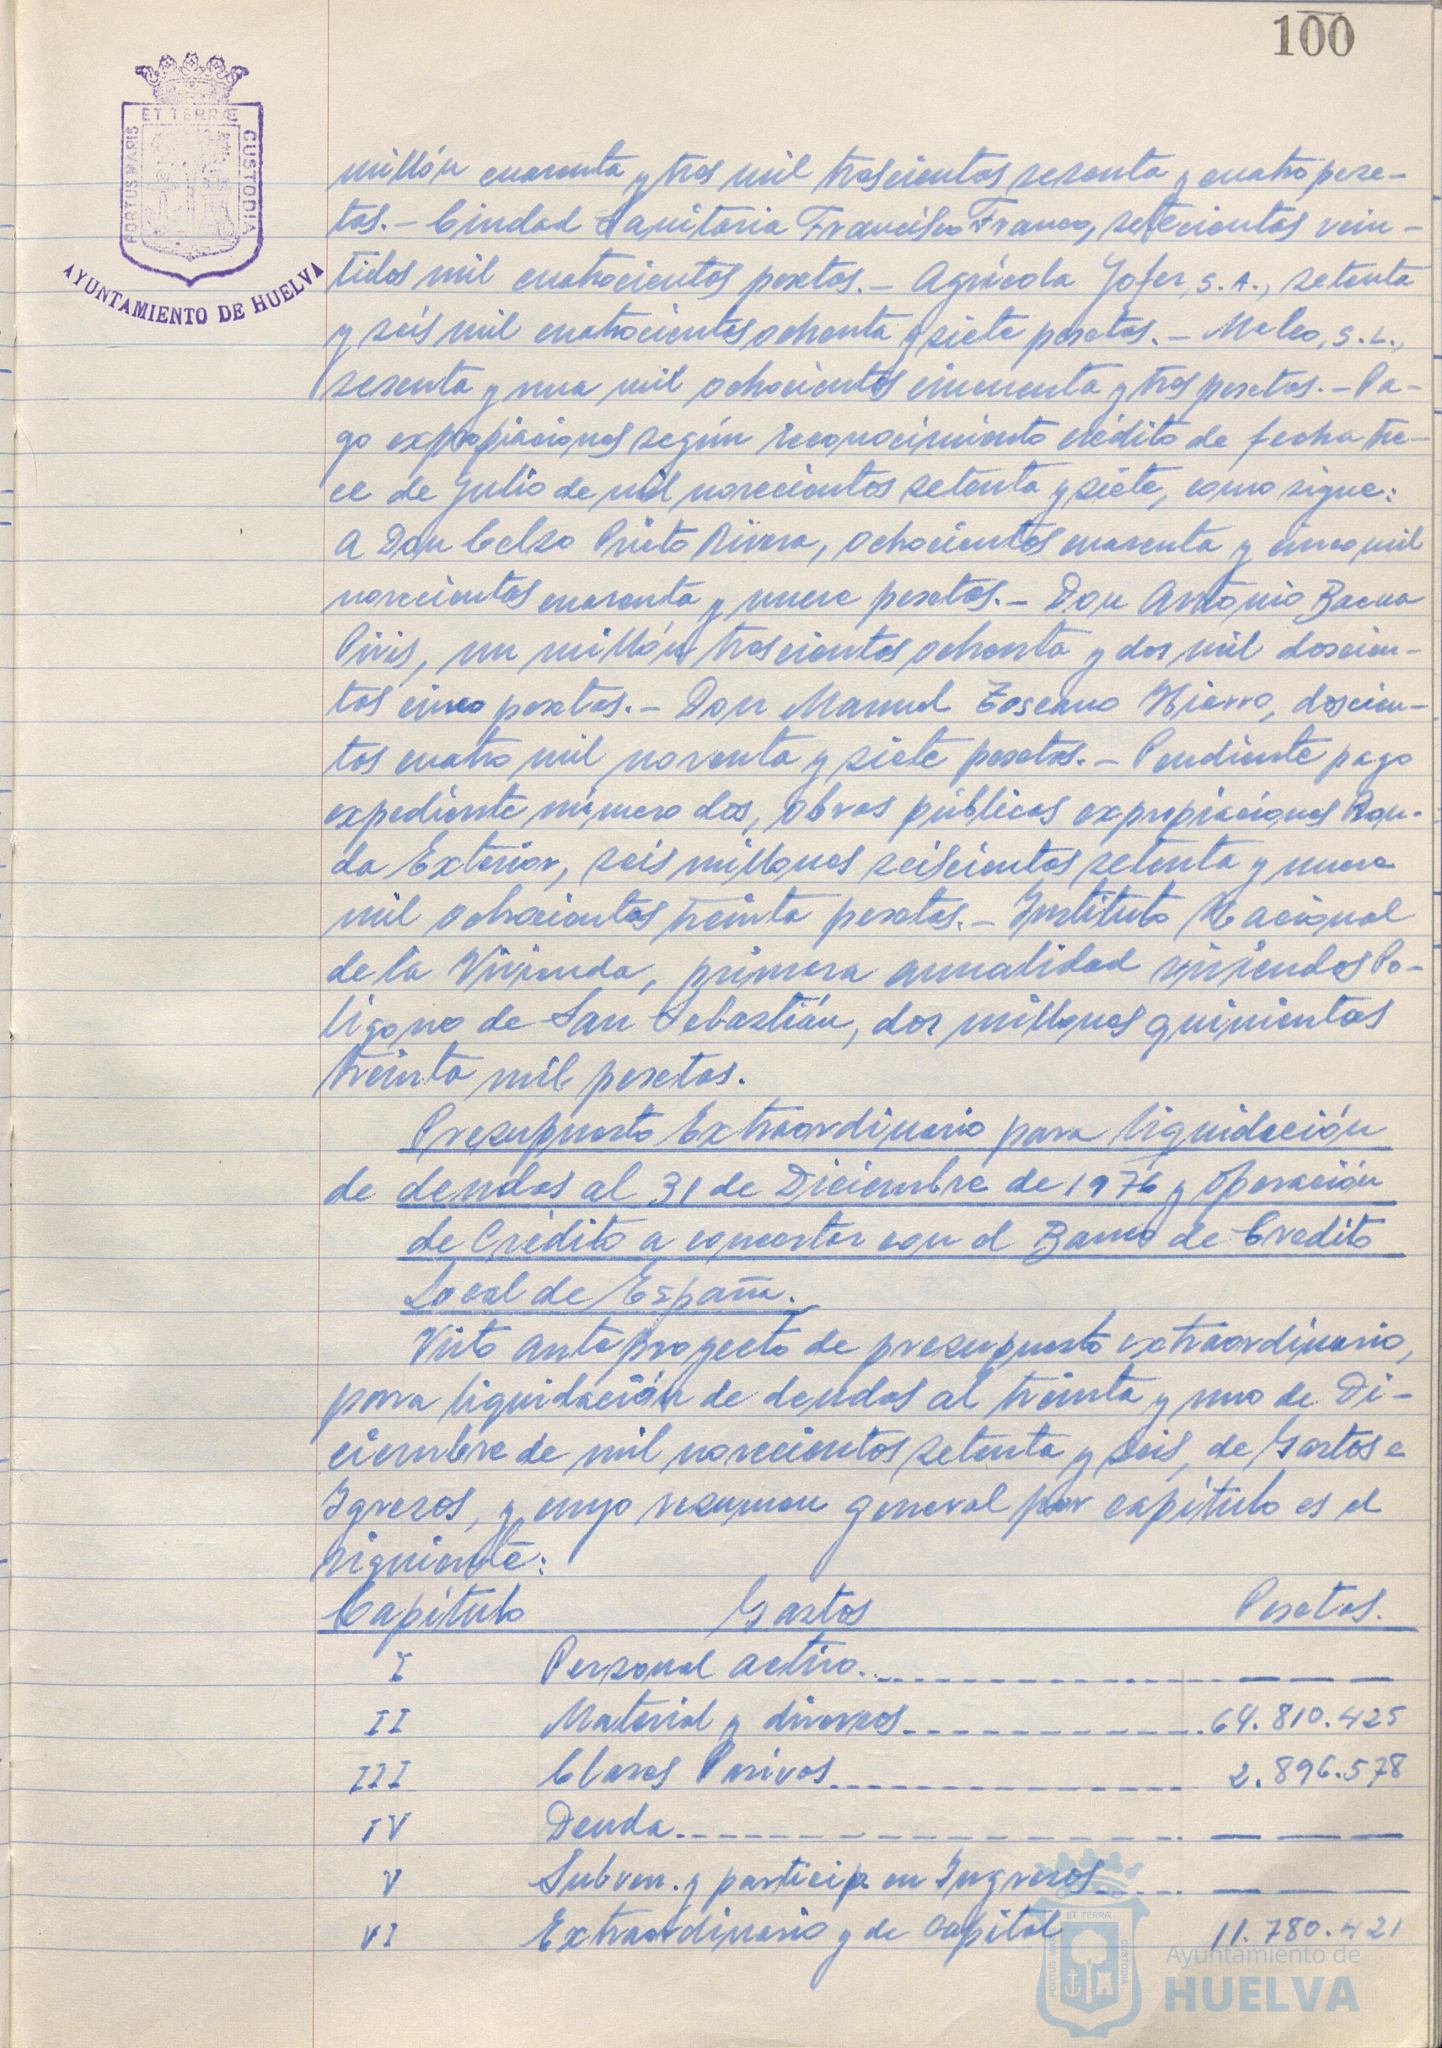 100
ET TERRÆ
PORTUS MARIS
CUSTODIA
AYUNTAMIENTO DE HUELVA
millón cuarenta y tres mil trescientos sesenta y cuatro pese-
tas.- Ciudad Sanitaria Francisco Franco, setecientos vein-
tidos mil cuatrocientos pesetas.- Agrícola Yofer, S.A., setenta
y seis mil cuatrocientos ochenta y siete pesetas.- Maleo, S.L.,
sesenta y una mil ochocientos cincuenta y tres pesetas.- Pa-
go expropiaciones según reconocimiento crédito de fecha tre-
ce de Julio de mil novecientos setenta y siete, como sigue:
A Don Celso Prieto Rivera, ochocientos cuarenta y cinco mil
novecientos cuarenta y nueve pesetas.- Don Antonio Baena
un millón trescientos ochenta y dos mil doscien-
tos cinco pesetas.- Don Manuel Toscano Hierro, doscien-
tos cuatro mil noventa y siete pesetas.- Pendiente pago
expediente número dos, obras públicas expropiaciones Ron-
da Exterior, seis millones seiscientos setenta y nueve
mil ochocientos treinta pesetas.- Instituto Nacional
de la Vivienda, primera anualidad viviendas Po-
lígono de San Sebastián, dos millones quinientas
treinta mil pesetas.
Presupuesto Extraordinario para liquidación
de deudas al 31 de Diciembre de 1976 y Operación
de Crédito a concertar con el Banco de Credito
Local de España.
Visto anteproyecto de presupuesto extraordinario,
para liquidación de deudas al treinta y uno de Di-
ciembre de mil novecientos setenta y seis, de Gastos e
Igresos, y cuyo resumen general por capítulo es el
siguiente:
Capítulo Gastos Pesetas.
I Personal activo.
II Material y diversos 64.810.425
III Clases Pasivas 2.896.578
IV Deuda
V Subven. y particip. en Ingresos
VI Extraordinario y de Capital 11.780.421
ET TERRÆ
CUSTODIA
Ayuntamiento de
HUELVA